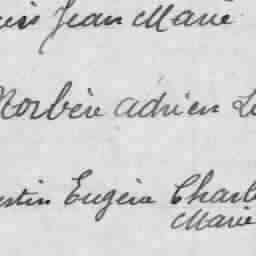 Jean Marie
Norbère Adrien
Eugène Charl
Marie